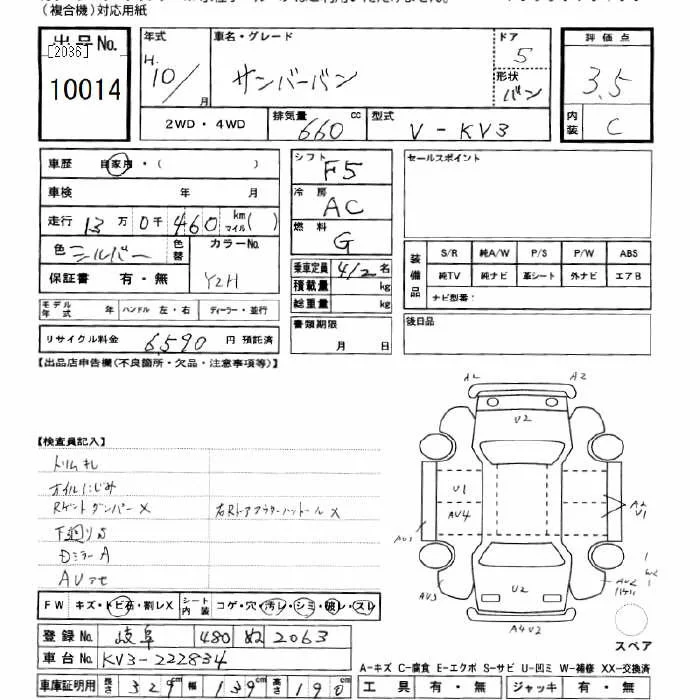 (複合機)対応用紙
出品No.
[2036]
10014
年式
H.
10/
月
車名・グレード
サンバーバン
ドア
5
形状
バン
評価点
3.5
内装
C
2WD・4WD
排気量
660 cc
型式
V-KV3
車歴 自家用・( )
車検 年 月
走行 13万0千460 km マイル( )
色 シルバー
色替
カラーNo.
Y2H
保証書 有・無
モデル年式 年 ハンドル 左・右 ディーラー・並行
リサイクル料金 6,590 円 預託済
シフト
F5
冷房
AC
燃料
G
乗車定員 4/2 名
積載量 kg
総重量 kg
書類期限
月 日
セールスポイント
装備品
S/R 純A/W P/S P/W ABS
純TV 純ナビ 革シート 外ナビ エアB
ナビ型番:
後日品
【出品店申告欄(不良箇所・欠品・注意事項等)】
【検査員記入】
トリムキレ
オイルにじみ
Rゲートダンパー X
下廻りS
DミラーA
FW キズ・トビ石・割レX
シート内装 コゲ・穴・汚レ・シミ・破レ・スレ
登録No. 岐阜 480 ぬ 2063
車台No. KV3-222834
車庫証明用 長さ 329cm 幅 139cm 高さ 190cm
A2
A2
U2
U1
AU4
A2
U1
AU3
U2
A4U2
スペア
A-キズ C-腐食 E-エクボ S-サビ U-凹ミ W-補修 XX-交換済
工具 有・無 ジャッキ 有・無